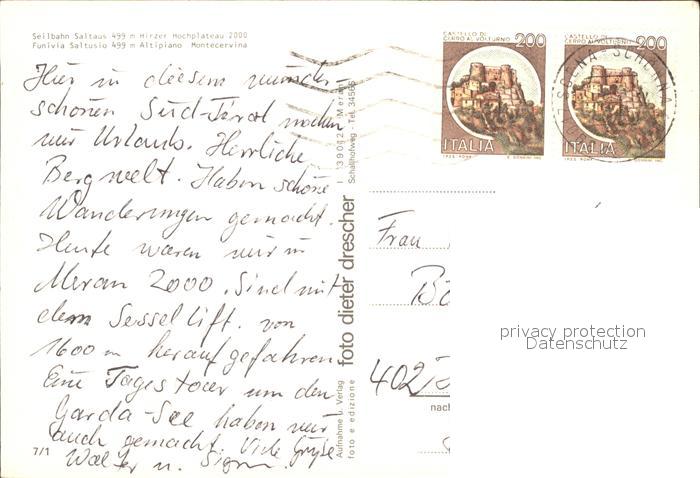 Seilbahn Saltaus 499 m Hirzer Hochplateau 2000
Funivia Saltusio 499 m Altipiano Montecervina
Hier in diesem wunder-
schönen Süd-Tirol machen
wir Urlaub. Herrliche
Bergwelt. Haben schöne
Wanderungen gemacht.
Heute waren wir in
Meran 2000. Sind mit
dem Sessellift. von
1600 m heraufgefahren.
Eine Tagestour um den
Garda-See haben wir
auch gemacht. Viele Grüße
Walter u.
7/1
Aufnahme u. Verlag
foto e edizione
foto dieter drescher
I 39012 Meran
Schallhofweg - Tel. 34565
CASTELLO DI
CERRO AL VOLTURNO
200
ITALIA
CASTELLO DI
CERRO AL VOLTURNO
200
ITALIA
SCENA - SCHENNA
Frau
Bü
402
nach
privacy protection
Datenschutz